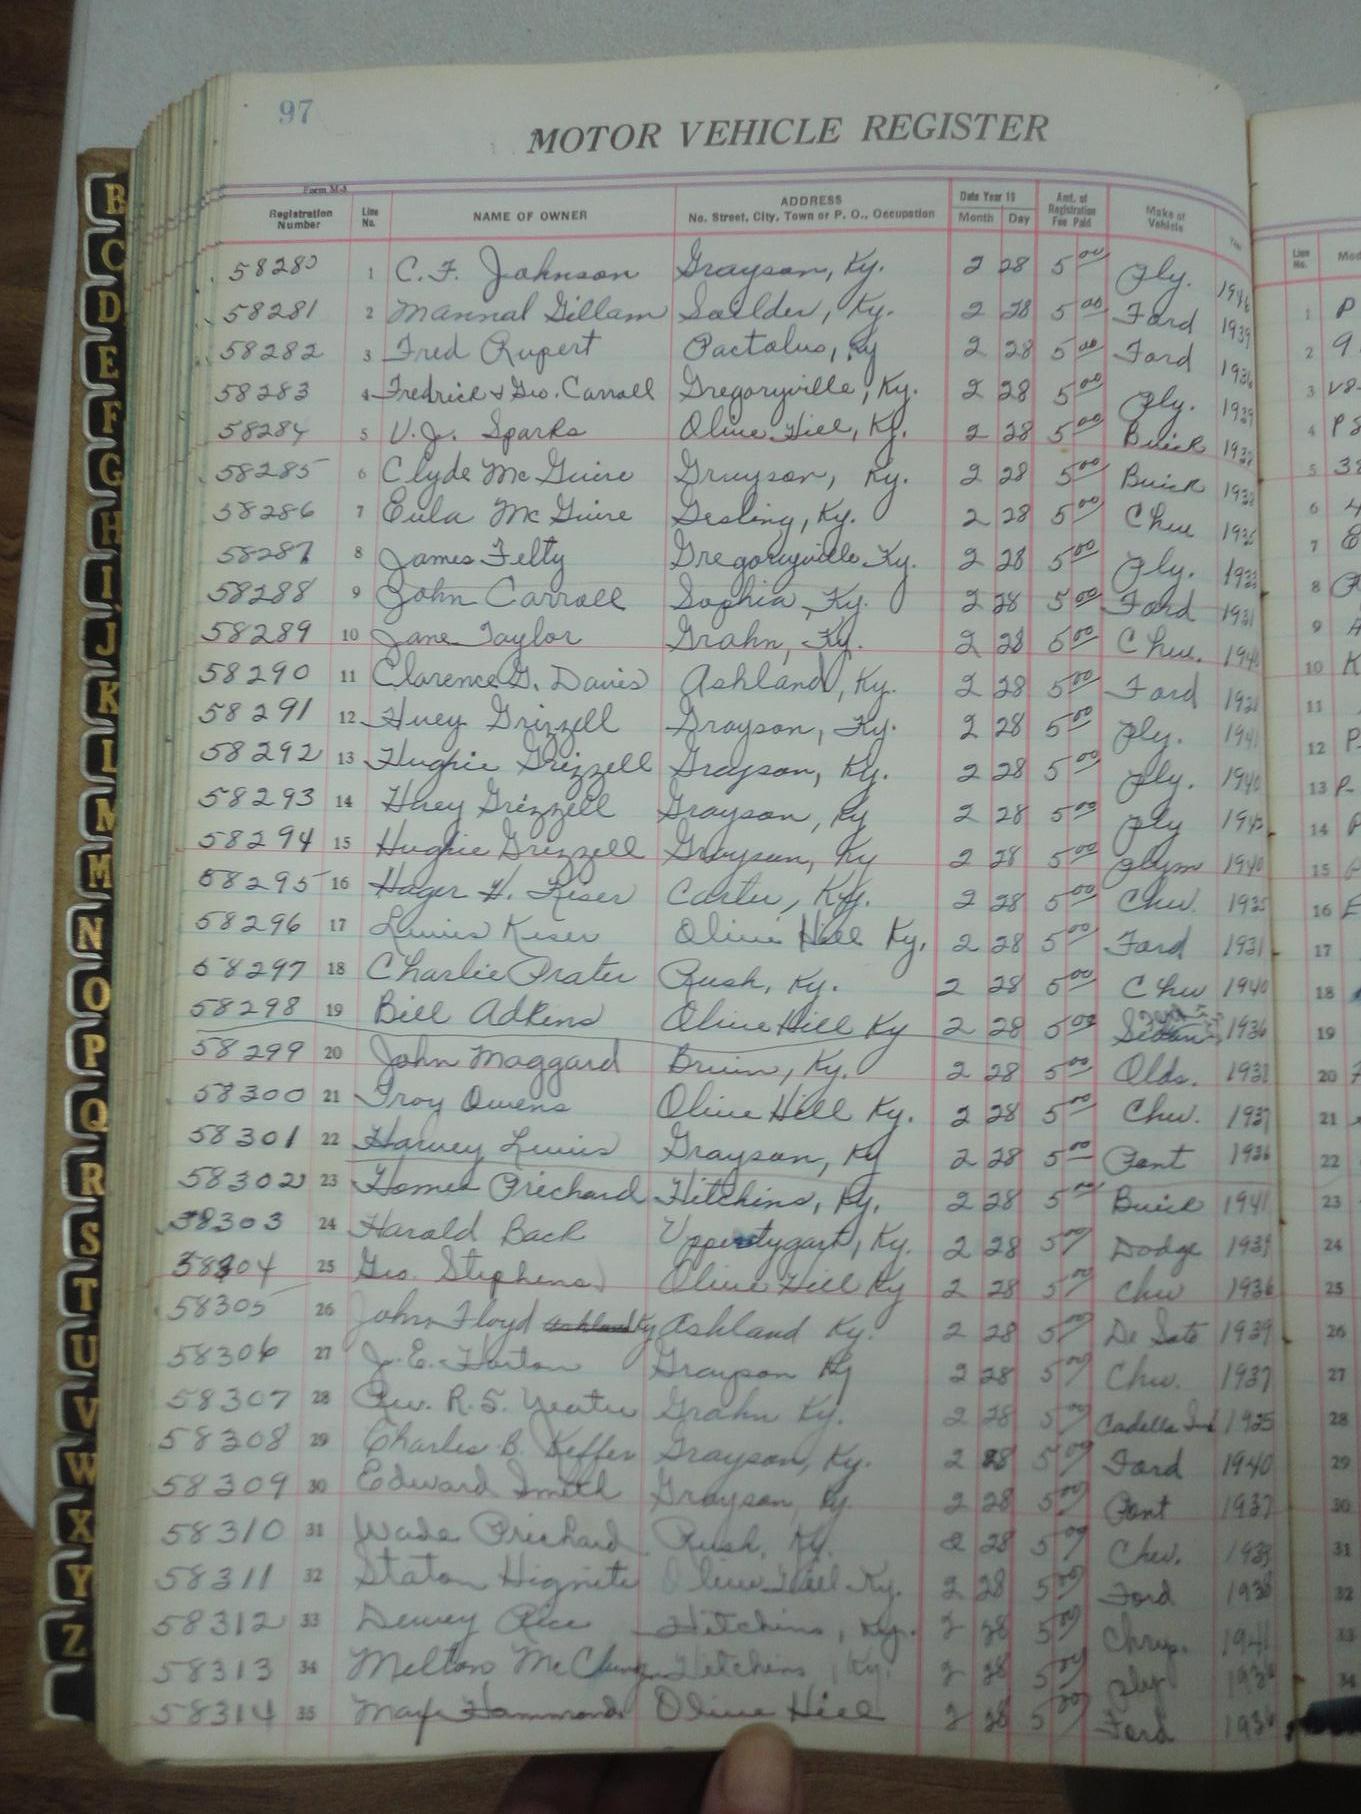 97
MOTOR VEHICLE REGISTER
Form M-3
Registration Number Line No. NAME OF OWNER ADDRESS No. Street, City, Town or P. O., Occupation Date Year 19 Month Day Amt. of Registration Fee Paid Make of Vehicle Year Line No.
58280 1 C. F. Johnson Grayson, Ky. 2 28 5 00 Ply. 1946 1 P
58281 2 Mannal Gillam Ky. 2 28 5 00 Ford 1939 2 9
58282 3 Fred Rupert Pactolus, Ky 2 28 5 00 Ford 1936 3 V8-
58283 4 Fredrick & Geo. Carroll Gregoryville, Ky. 2 28 5 00 Ply. 1939 4 P8
58284 5 V. J. Sparks Olive Hill, Ky. 2 28 5 00 Buick 1938 5 38
58285 6 Clyde McGuire Grayson, Ky. 2 28 5 00 Buick 1938 6
58286 7 Eula McGuire Gesling, Ky. 2 28 5 00 Chev 7
58287 8 James Felty Gregoryville Ky. 2 28 5 00 Ply. 1933 8
58288 9 John Carroll Sophia, Ky. 2 28 5 00 Ford 1931 9
58289 10 Jane Taylor Grahn, Ky. 2 28 5 00 Chev. 10 K
58290 11 Clarence G. Davis Ashland, Ky. 2 28 5 00 Ford 11
58291 12 Huey Grizzell Grayson, Ky. 2 28 5 00 Ply. 1941 12 P
58292 13 Hughie Grizzell Grayson, Ky. 2 28 5 00 Ply. 1940 13 P-
58293 14 Huey Grizzell Grayson, Ky 2 28 5 00 Ply 14 P
58294 15 Hughie Grizzell Grayson, Ky 2 28 5 00 Plym 1940 15
58295 16 Hager H. Kiser Carter, Ky. 2 28 5 00 Chev. 1935 16
58296 17 Lewis Kiser Olive Hill Ky. 2 28 5 00 Ford 1931 17
58297 18 Charlie Prater Rush, Ky. 2 28 5 00 Chev 1940 18
58298 19 Bill Adkins Olive Hill Ky 2 28 5 00 Sedan 1936 19
58299 20 John Maggard Bruin, Ky. 2 28 5 00 Olds. 1938 20
58300 21 Troy Owens Olive Hill Ky. 2 28 5 00 Chev. 1937 21
58301 22 Harvey Lewis Grayson, Ky 2 28 5 00 Pont 1936 22
58302 23 Homer Prichard Hitchins, Ky. 2 28 5 00 Buick 1941 23
58303 24 Harold Back Uppertygart, Ky. 2 28 5 00 Dodge 1939 24
58304 25 Geo. Stephens Olive Hill Ky 2 28 5 00 Chev 1936 25
58305 26 John Floyd Ashland Ky Ashland Ky. 2 28 5 00 De Soto 1939 26
58306 27 J. E. Horton Grayson Ky 2 28 5 00 Chev. 1937 27
58307 28 Rev. R. S. Yeates Grahn Ky. 2 28 5 00 1935 28
58308 29 Charles B. Keffer Grayson, Ky. 2 28 5 00 Ford 1940 29
58309 30 Edward Smith Grayson, Ky 2 28 5 00 Pont 1937 30
58310 31 Wade Prichard Rush, Ky. 2 28 5 00 Chev. 1939 31
58311 32 Staton Hignite Olive Hill Ky. 2 28 5 00 Ford 1938 32
58312 33 Dewey Rice Hitchins, Ky. 2 28 5 00 Chrys. 1941 33
58313 34 Melton Hitchins, Ky. 2 28 5 00 Ply 1936 34
58314 35 Max Hammonds Olive Hill 2 28 5 00 Ford 1936
B
C
D
E
F
G
H
I
J
K
L
M
M
N
O
P
Q
R
S
T
U
V
W
X
Y
Z